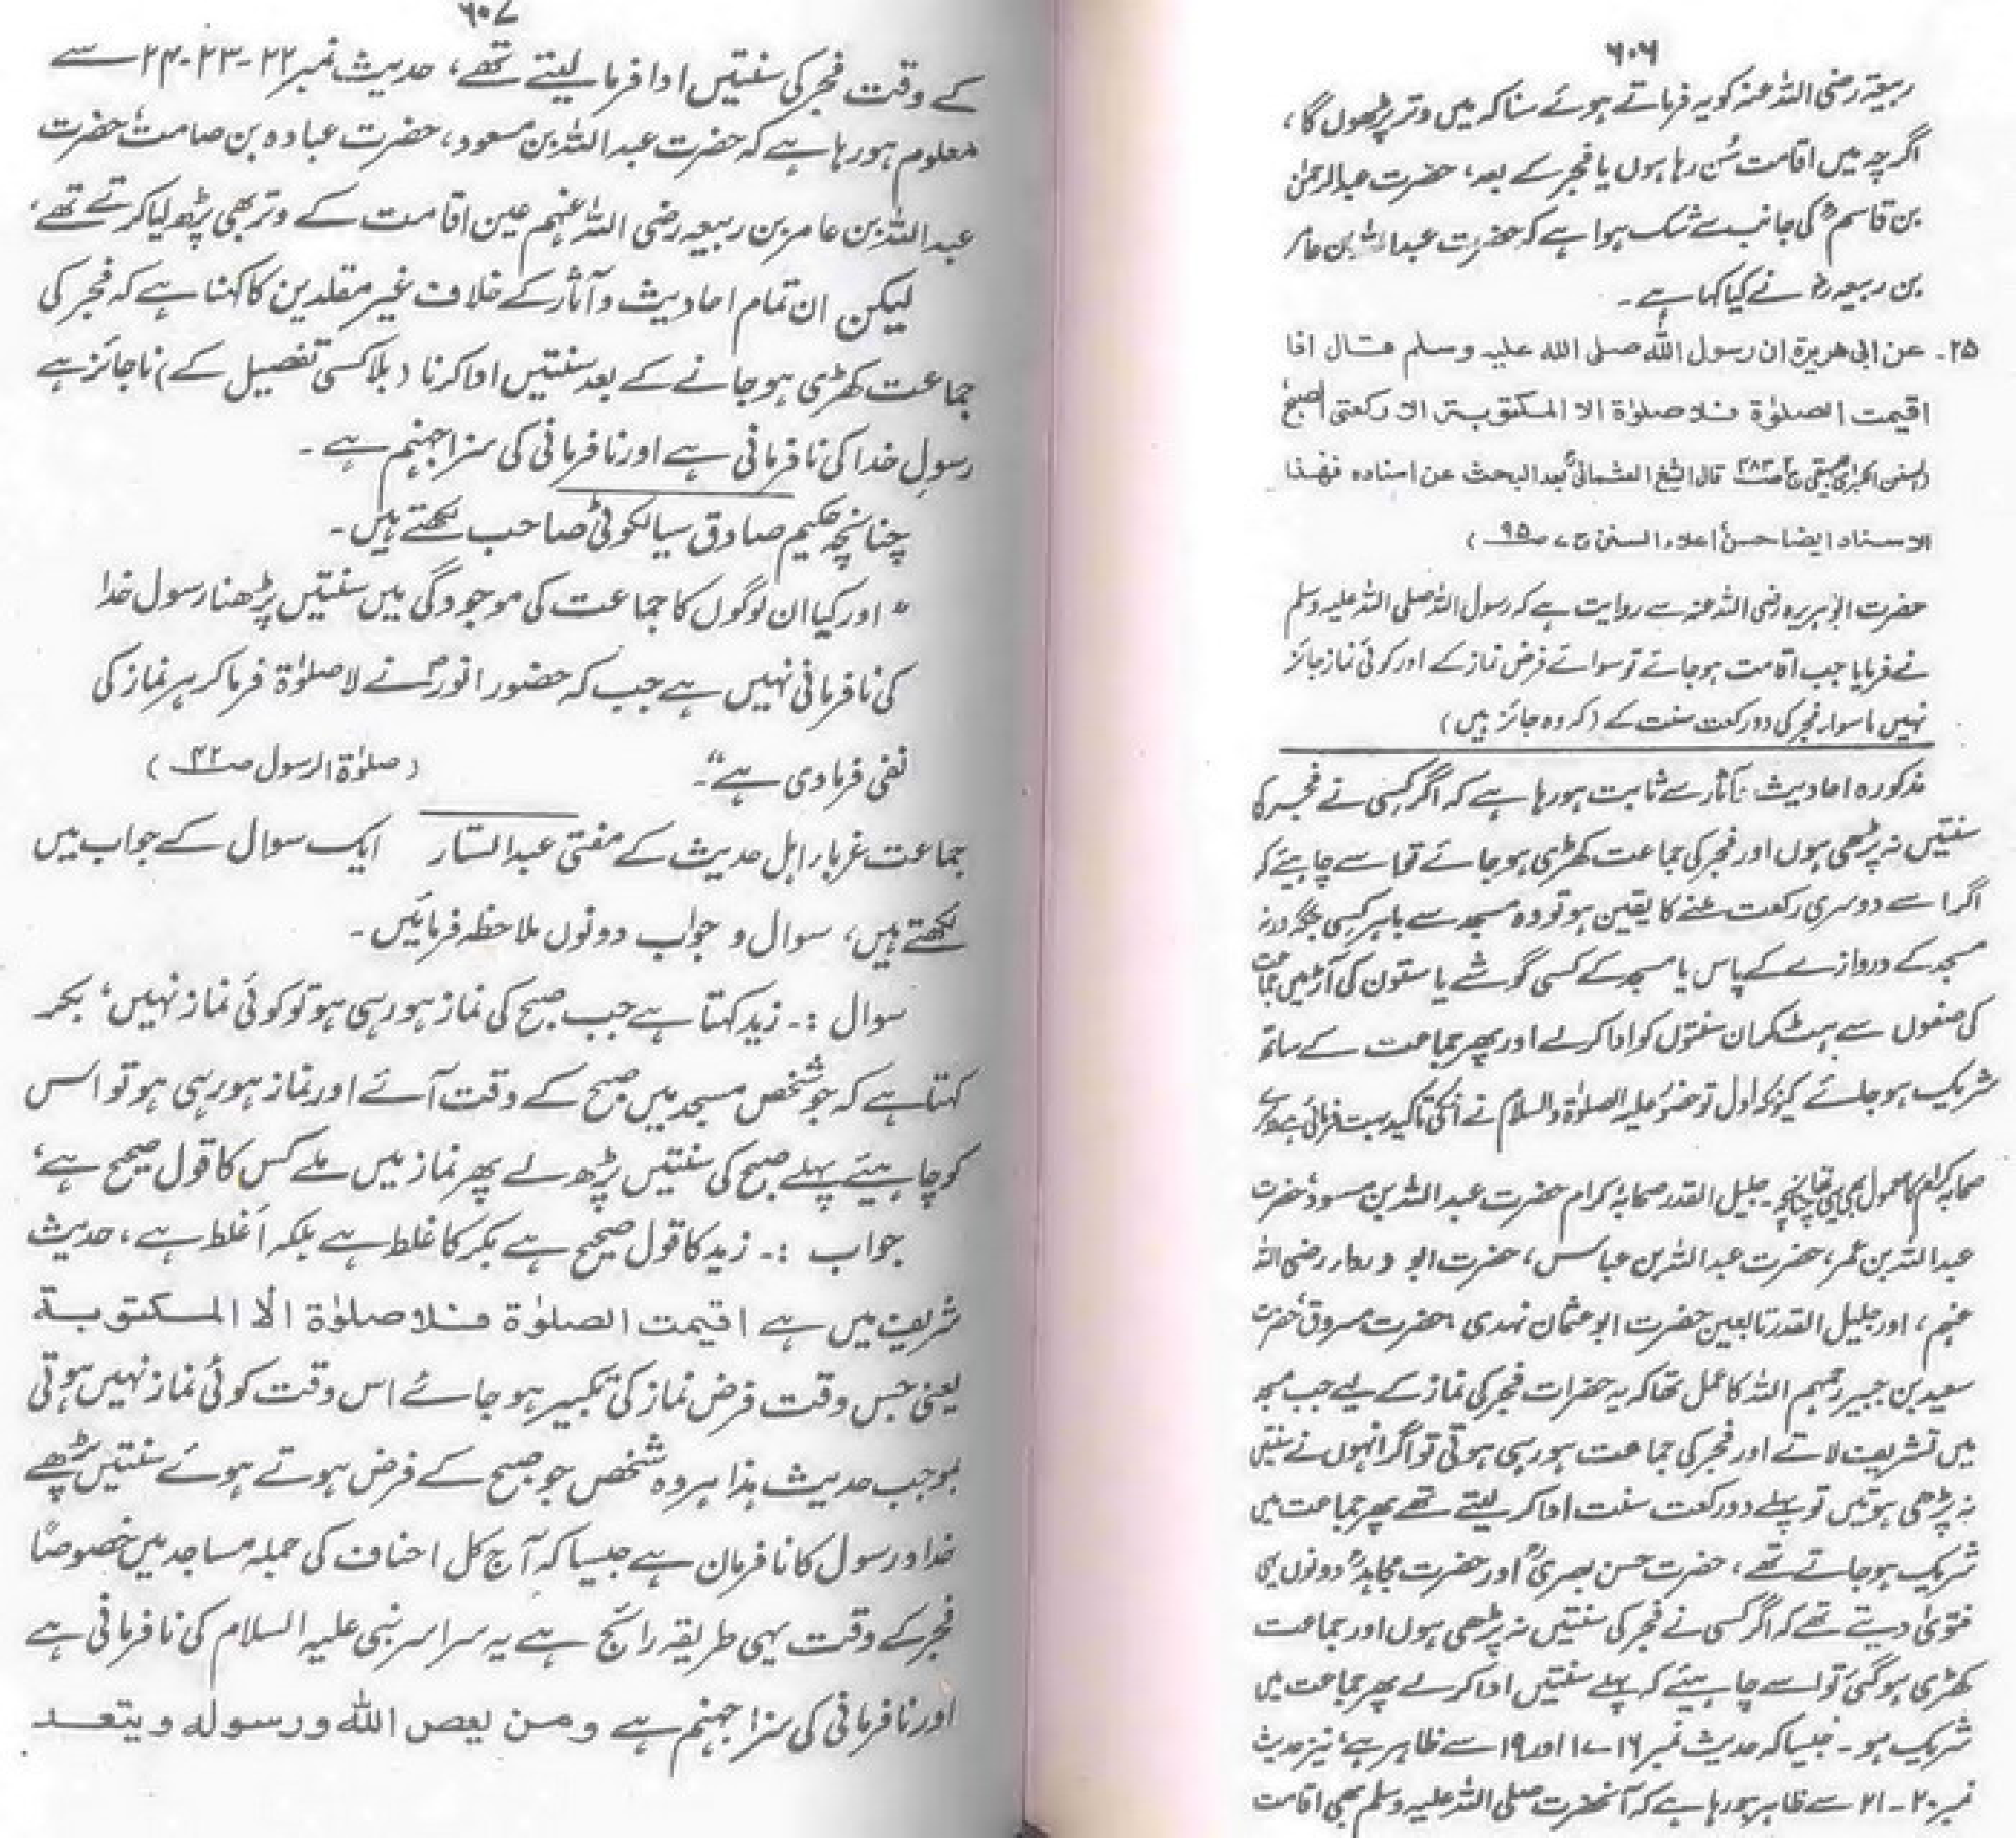 ۶۰۶
ربیعۃ رضی اللہ عنہ کو یہ فرماتے ہوئے سنا کہ میں وتر پڑھوں گا،
اگرچہ میں اقامت سُن رہا ہوں یا فجر کے بعد، حضرت عبدالرحمٰن
بن قاسمؒ کی جانب سے شک ہوا ہے کہ حضرت عبداللہ بن عامر
بن ربیعہ رضؓ نے کیا کہا ہے۔
۲۵۔ عن ابی ھریرۃ ان رسول اللہ صلی اللہ علیہ وسلم قال اذا
اقیمت الصلوٰۃ فلا صلوٰۃ الا المکتوبۃ الا رکعتی الصبح
(السنن الکبریٰ للبیہقی ج۲ ص۴۸۳ قال الشیخ العثمانیؒ بعد البحث عن اسنادہ فھٰذا
الاسناد ایضا حسن اعلاء السنن ج۷ ص۹۵)
حضرت ابوہریرہ رضی اللہ عنہ سے روایت ہے کہ رسول اللہ صلی اللہ علیہ وسلم
نے فرمایا جب اقامت ہو جائے تو سوائے فرض نماز کے اور کوئی نماز جائز
نہیں ماسوار فجر کی دو رکعت سنت کے (کہ وہ جائز ہیں)
مذکورہ احادیث و آثار سے ثابت ہو رہا ہے کہ اگر کسی نے فجر کی
سنتیں نہ پڑھی ہوں اور فجر کی جماعت کھڑی ہو جائے تو اسے چاہیئے کہ
اگر اسے دوسری رکعت ملنے کا یقین ہو تو وہ مسجد سے باہر کسی جگہ ورنہ
مسجد کے دروازے کے پاس یا مسجد کے کسی گوشے یا ستون کی آڑ میں جماعت
کی صفوں سے ہٹ کر ان سنتوں کو ادا کر لے اور پھر جماعت کے ساتھ
شریک ہو جائے کیونکہ اول تو حضور علیہ الصلوٰۃ والسلام نے انکی تاکید بہت فرمائی ہے دوسرے
صحابہ کرام کا معمول بھی یہی تھا چنانچہ۔ جلیل القدر صحابہ کرام حضرت عبداللہ بن مسعود، حضرت
عبداللہ بن عمر، حضرت عبداللہ بن عباس، حضرت ابو دردار رضی اللہ
عنہم، اور جلیل القدر تابعین حضرت ابو عثمان نہدی، حضرت مسروق، حضرت
سعید بن جبیر رحمہم اللہ کا عمل تھا کہ یہ حضرات فجر کی نماز کے لیے جب مسجد
میں تشریف لاتے اور فجر کی جماعت ہو رہی ہوتی تو اگر انہوں نے سنتیں
نہ پڑھی ہوتیں تو پہلے دو رکعت سنت ادا کر لیتے تھے پھر جماعت میں
شریک ہو جاتے تھے، حضرت حسن بصریؒ اور حضرت مجاہدؒ دونوں یہی
فتویٰ دیتے تھے کہ اگر کسی نے فجر کی سنتیں نہ پڑھی ہوں اور جماعت
کھڑی ہو گئی تو اسے چاہیئے کہ پہلے سنتیں ادا کر لے پھر جماعت میں
شریک ہو۔ جیسا کہ حدیث نمبر ۱۶-۱۷ اور ۱۹ سے ظاہر ہے، نیز حدیث
نمبر ۲۰-۲۱ سے ظاہر ہو رہا ہے کہ آنحضرت صلی اللہ علیہ وسلم بھی اقامت
۶۰۷
کے وقت فجر کی سنتیں ادا فرما لیتے تھے، حدیث نمبر ۲۲-۲۳-۲۴ سے
معلوم ہو رہا ہے کہ حضرت عبداللہ بن مسعود، حضرت عبادہ بن صامت، حضرت
عبداللہ بن عامر بن ربیعہ رضی اللہ عنہم عین اقامت کے وتر بھی پڑھ لیا کرتے تھے،
لیکن ان تمام احادیث و آثار کے خلاف غیر مقلدین کا کہنا ہے کہ فجر کی
جماعت کھڑی ہو جانے کے بعد سنتیں ادا کرنا (بلا کسی تفصیل کے) ناجائز ہے
رسول خدا کی نافرمانی ہے اور نافرمانی کی سزا جہنم ہے۔
چنانچہ حکیم صادق سیالکوٹی صاحب لکھتے ہیں۔
"اور کیا ان لوگوں کا جماعت کی موجودگی میں سنتیں پڑھنا رسول خدا
کی نافرمانی نہیں ہے جب کہ حضور انورؐ نے لا صلوٰۃ فرما کر ہر نماز کی
نفی فرما دی ہے"۔ (صلوٰۃ الرسول ص۴۲)
جماعت غربار اہل حدیث کے مفتی عبدالستار ایک سوال کے جواب میں
لکھتے ہیں، سوال و جواب دونوں ملاحظہ فرمائیں۔
سوال :۔ زید کہتا ہے جب صبح کی نماز ہو رہی ہو تو کوئی نماز نہیں، بکر
کہتا ہے کہ جو شخص مسجد میں صبح کے وقت آئے اور نماز ہو رہی ہو تو اس
کو چاہیئے پہلے صبح کی سنتیں پڑھ لے پھر نماز میں ملے کس کا قول صحیح ہے،
جواب :۔ زید کا قول صحیح ہے بکر کا غلط ہے بلکہ اَغلط ہے، حدیث
شریف میں ہے اقیمت الصلوٰۃ فلا صلوٰۃ الّا المکتوبۃ
یعنی جس وقت فرض نماز کی تکبیر ہو جائے اس وقت کوئی نماز نہیں ہوتی
بموجب حدیث ہذا ہر وہ شخص جو صبح کے فرض ہوتے ہوئے سنتیں پڑھے
خدا و رسول کا نافرمان ہے جیسا کہ آج کل احناف کی جملہ مساجد میں خصوصاً
فجر کے وقت یہی طریقہ رائج ہے یہ سراسر نبی علیہ السلام کی نافرمانی ہے
اور نافرمانی کی سزا جہنم ہے ومن یعص اللہ ورسولہ ویتعد